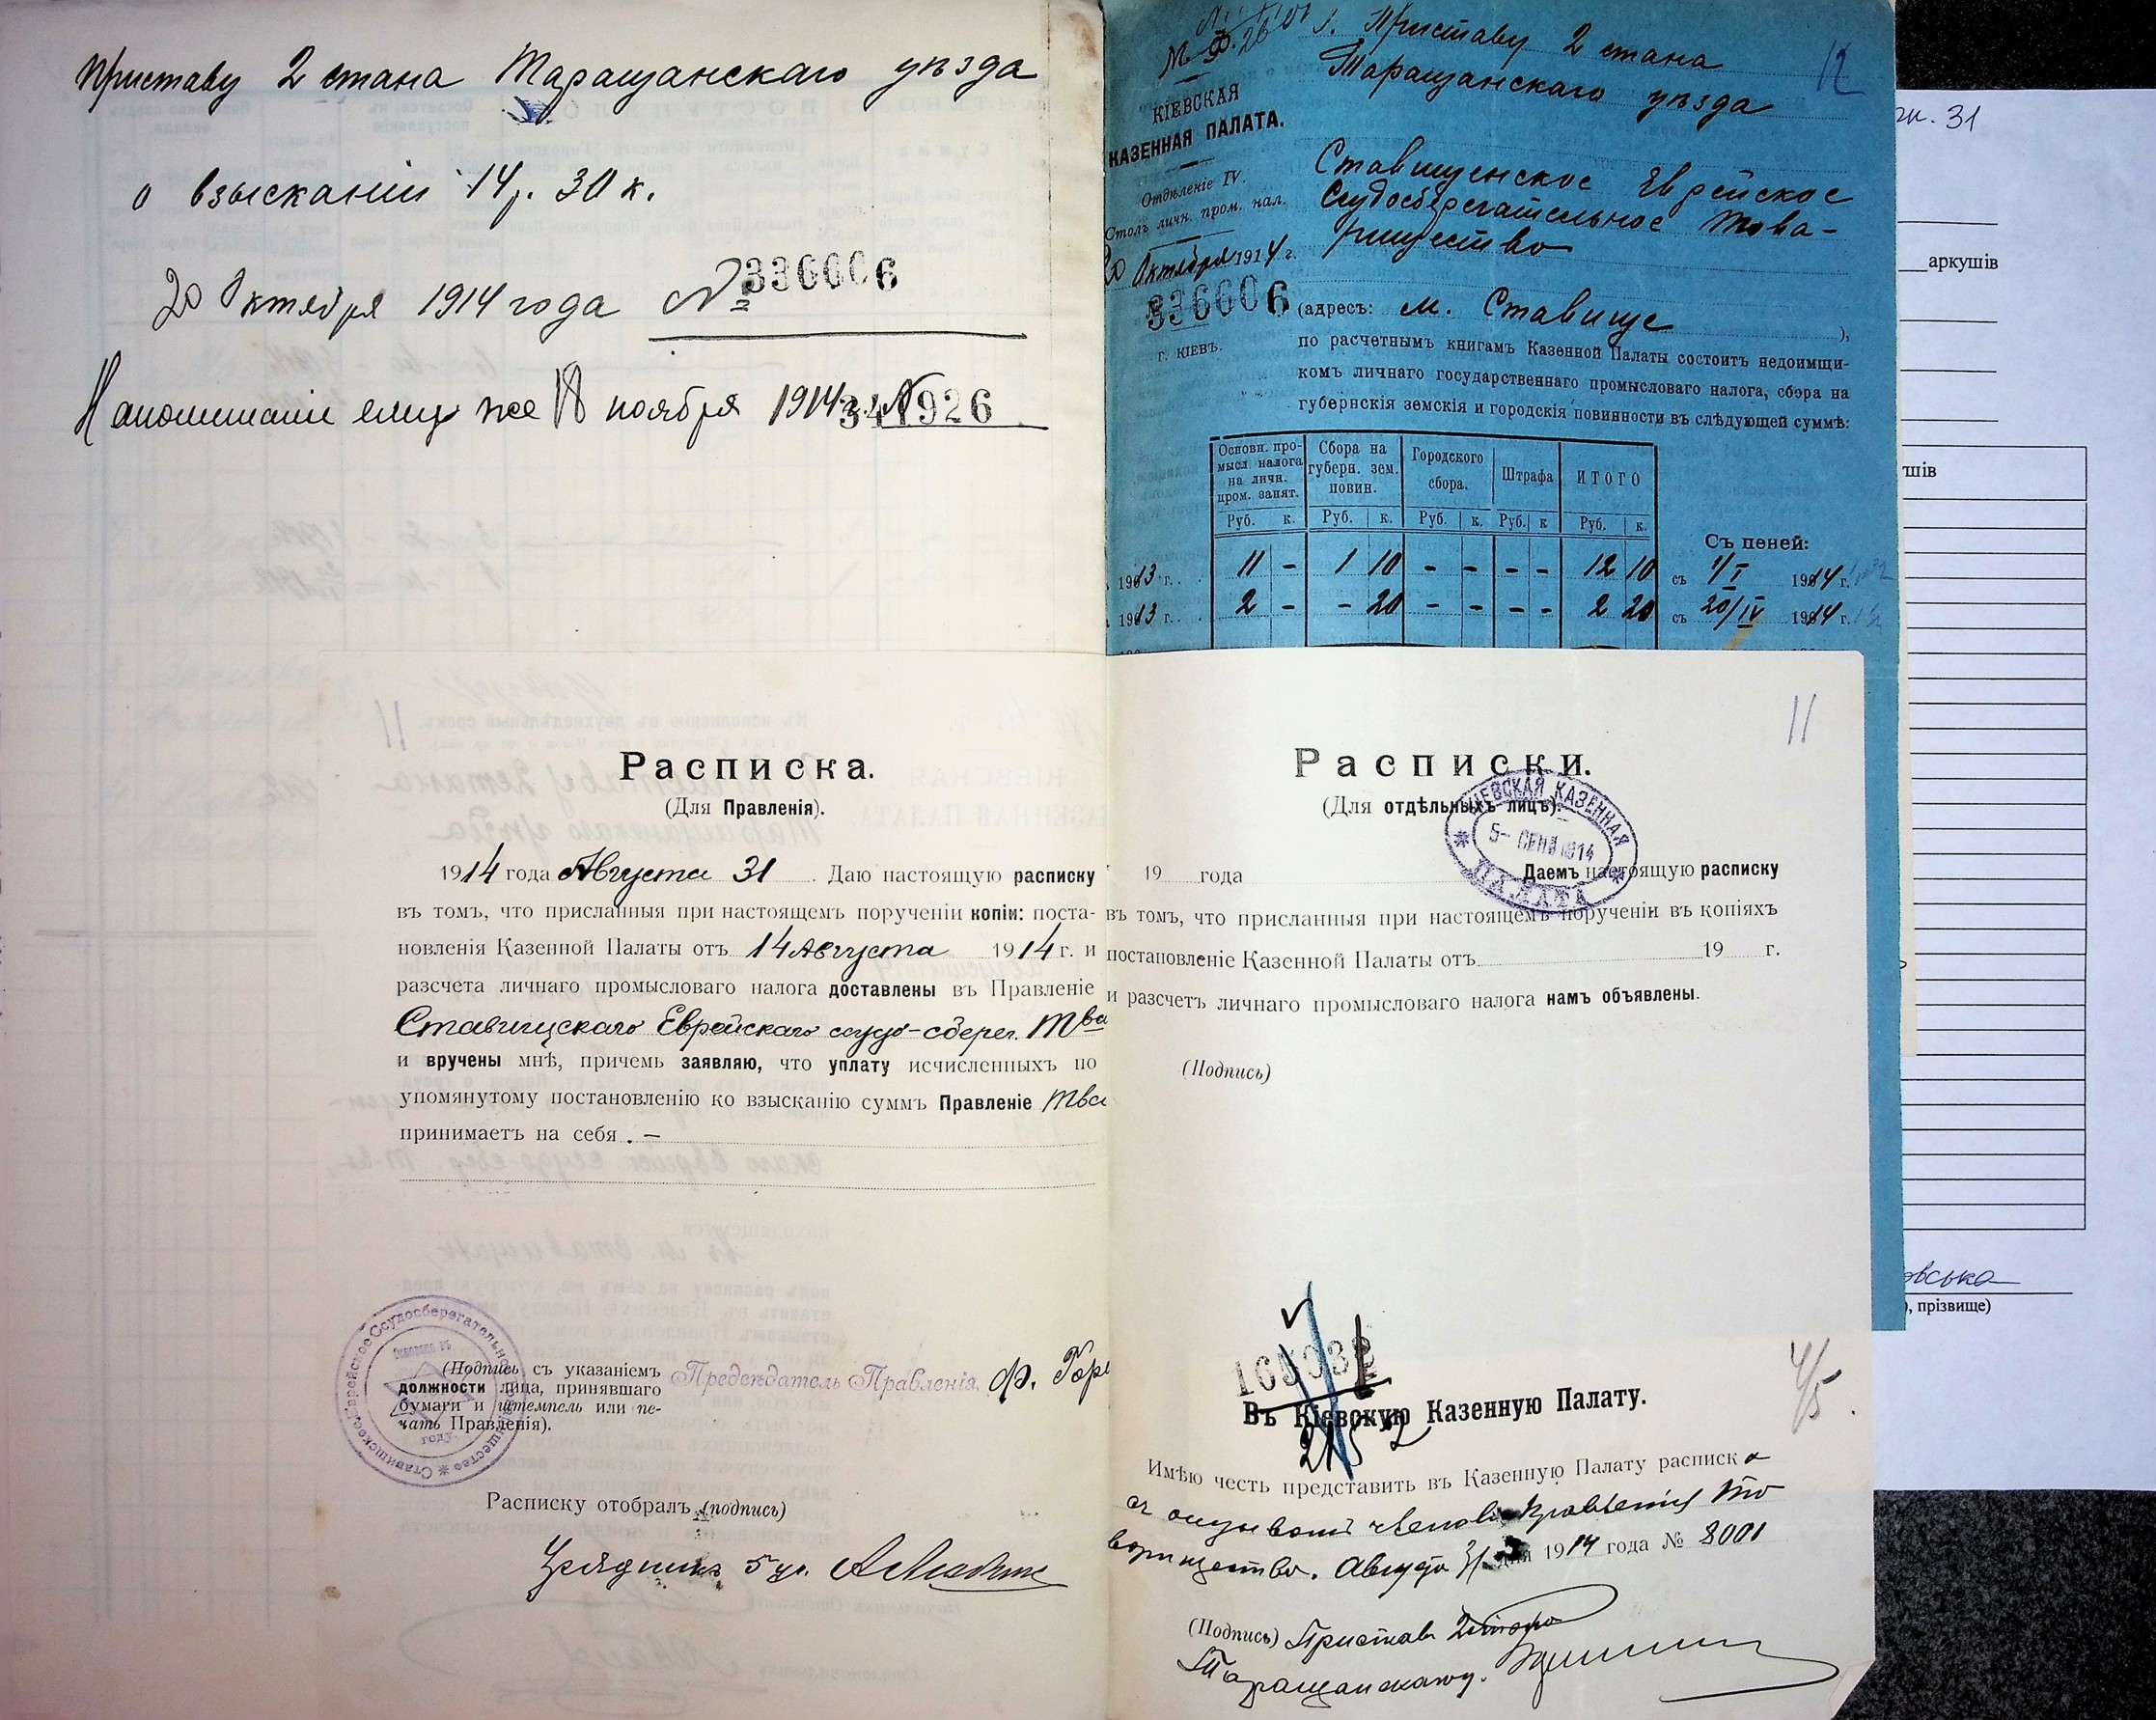 Приставу 2 стана Таращанскаго уѣзда
о взысканіи 14 р. 30 к.
20 Октября 1914 года № 336606
Напоминаніе ему же 18 ноября 1914 г. № 341926
г. Приставу 2 стана
Таращанскаго уѣзда
12
М. Ф.
КІЕВСКАЯ
КАЗЕННАЯ ПАЛАТА.
Отдѣленіе IV.
Столъ личн. пром. нал.
20 Октября 1914 г.
336606
г. КІЕВЪ.
Ставищенское Еврейское
Ссудосберегательное Това-
рищество
(адресъ: м. Ставище ),
по расчетнымъ книгамъ Казенной Палаты состоитъ недоимщи-
комъ личнаго государственнаго промысловаго налога, сбора на
губернскія земскія и городскія повинности въ слѣдующей суммѣ:
Основн. про-
мысл. налога
на личн.
пром. занят.
Сбора на
губерн. зем.
повин.
Городского
сбора.
Штрафа
ИТОГО
Руб. к. Руб. к. Руб. к. Руб. к Руб. к.
Съ пеней:
1913 г. . 11 - 1 10 - - - - 12 10 съ 1/I 1914 г.
1913 г. . 2 - - 20 - - - - 2 20 съ 20/IV 1914 г.
31
аркушів
шів
, прізвище)
Расписка.
(Для Правленія).
1914 года Августа 31 . Даю настоящую расписку
въ томъ, что присланныя при настоящемъ порученіи копіи: поста-
новленія Казенной Палаты отъ 14 Августа 1914 г. и
разсчета личнаго промысловаго налога доставлены въ Правленіе
Ставищскаго Еврейскаго ссудо-сберег. Тва
и вручены мнѣ, причемъ заявляю, что уплату исчисленныхъ по
упомянутому постановленію ко взысканію суммъ Правленіе Тва
принимаетъ на себя . —
(Подпись съ указаніемъ
должности лица, принявшаго
бумаги и штемпель или пе-
чать Правленія).
Предсѣдатель Правленія. Ф.
Ставищское Еврейское Ссудосберегательное Товарищество
году
Расписку отобралъ (подпись)
Урядникъ 5 уч.
11
Расписки.
(Для отдѣльныхъ лицъ).
КІЕВСКАЯ КАЗЕННАЯ
5- СЕН 1914
ПАЛАТА
19 года Даемъ настоящую расписку
въ томъ, что присланныя при настоящемъ порученіи въ копіяхъ
постановленіе Казенной Палаты отъ 19 г.
и разсчетъ личнаго промысловаго налога намъ объявлены.
(Подпись)
4/5
Въ Кіевскую Казенную Палату.
Имѣю честь представить въ Казенную Палату расписк
членовъ Правленія То
варищества. Августа 31 дня 1914 года № 8001
(Подпись) Приставъ 2 стана
Таращанскаго у.